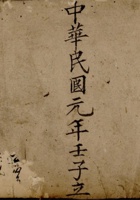 中華民國元年壬子立